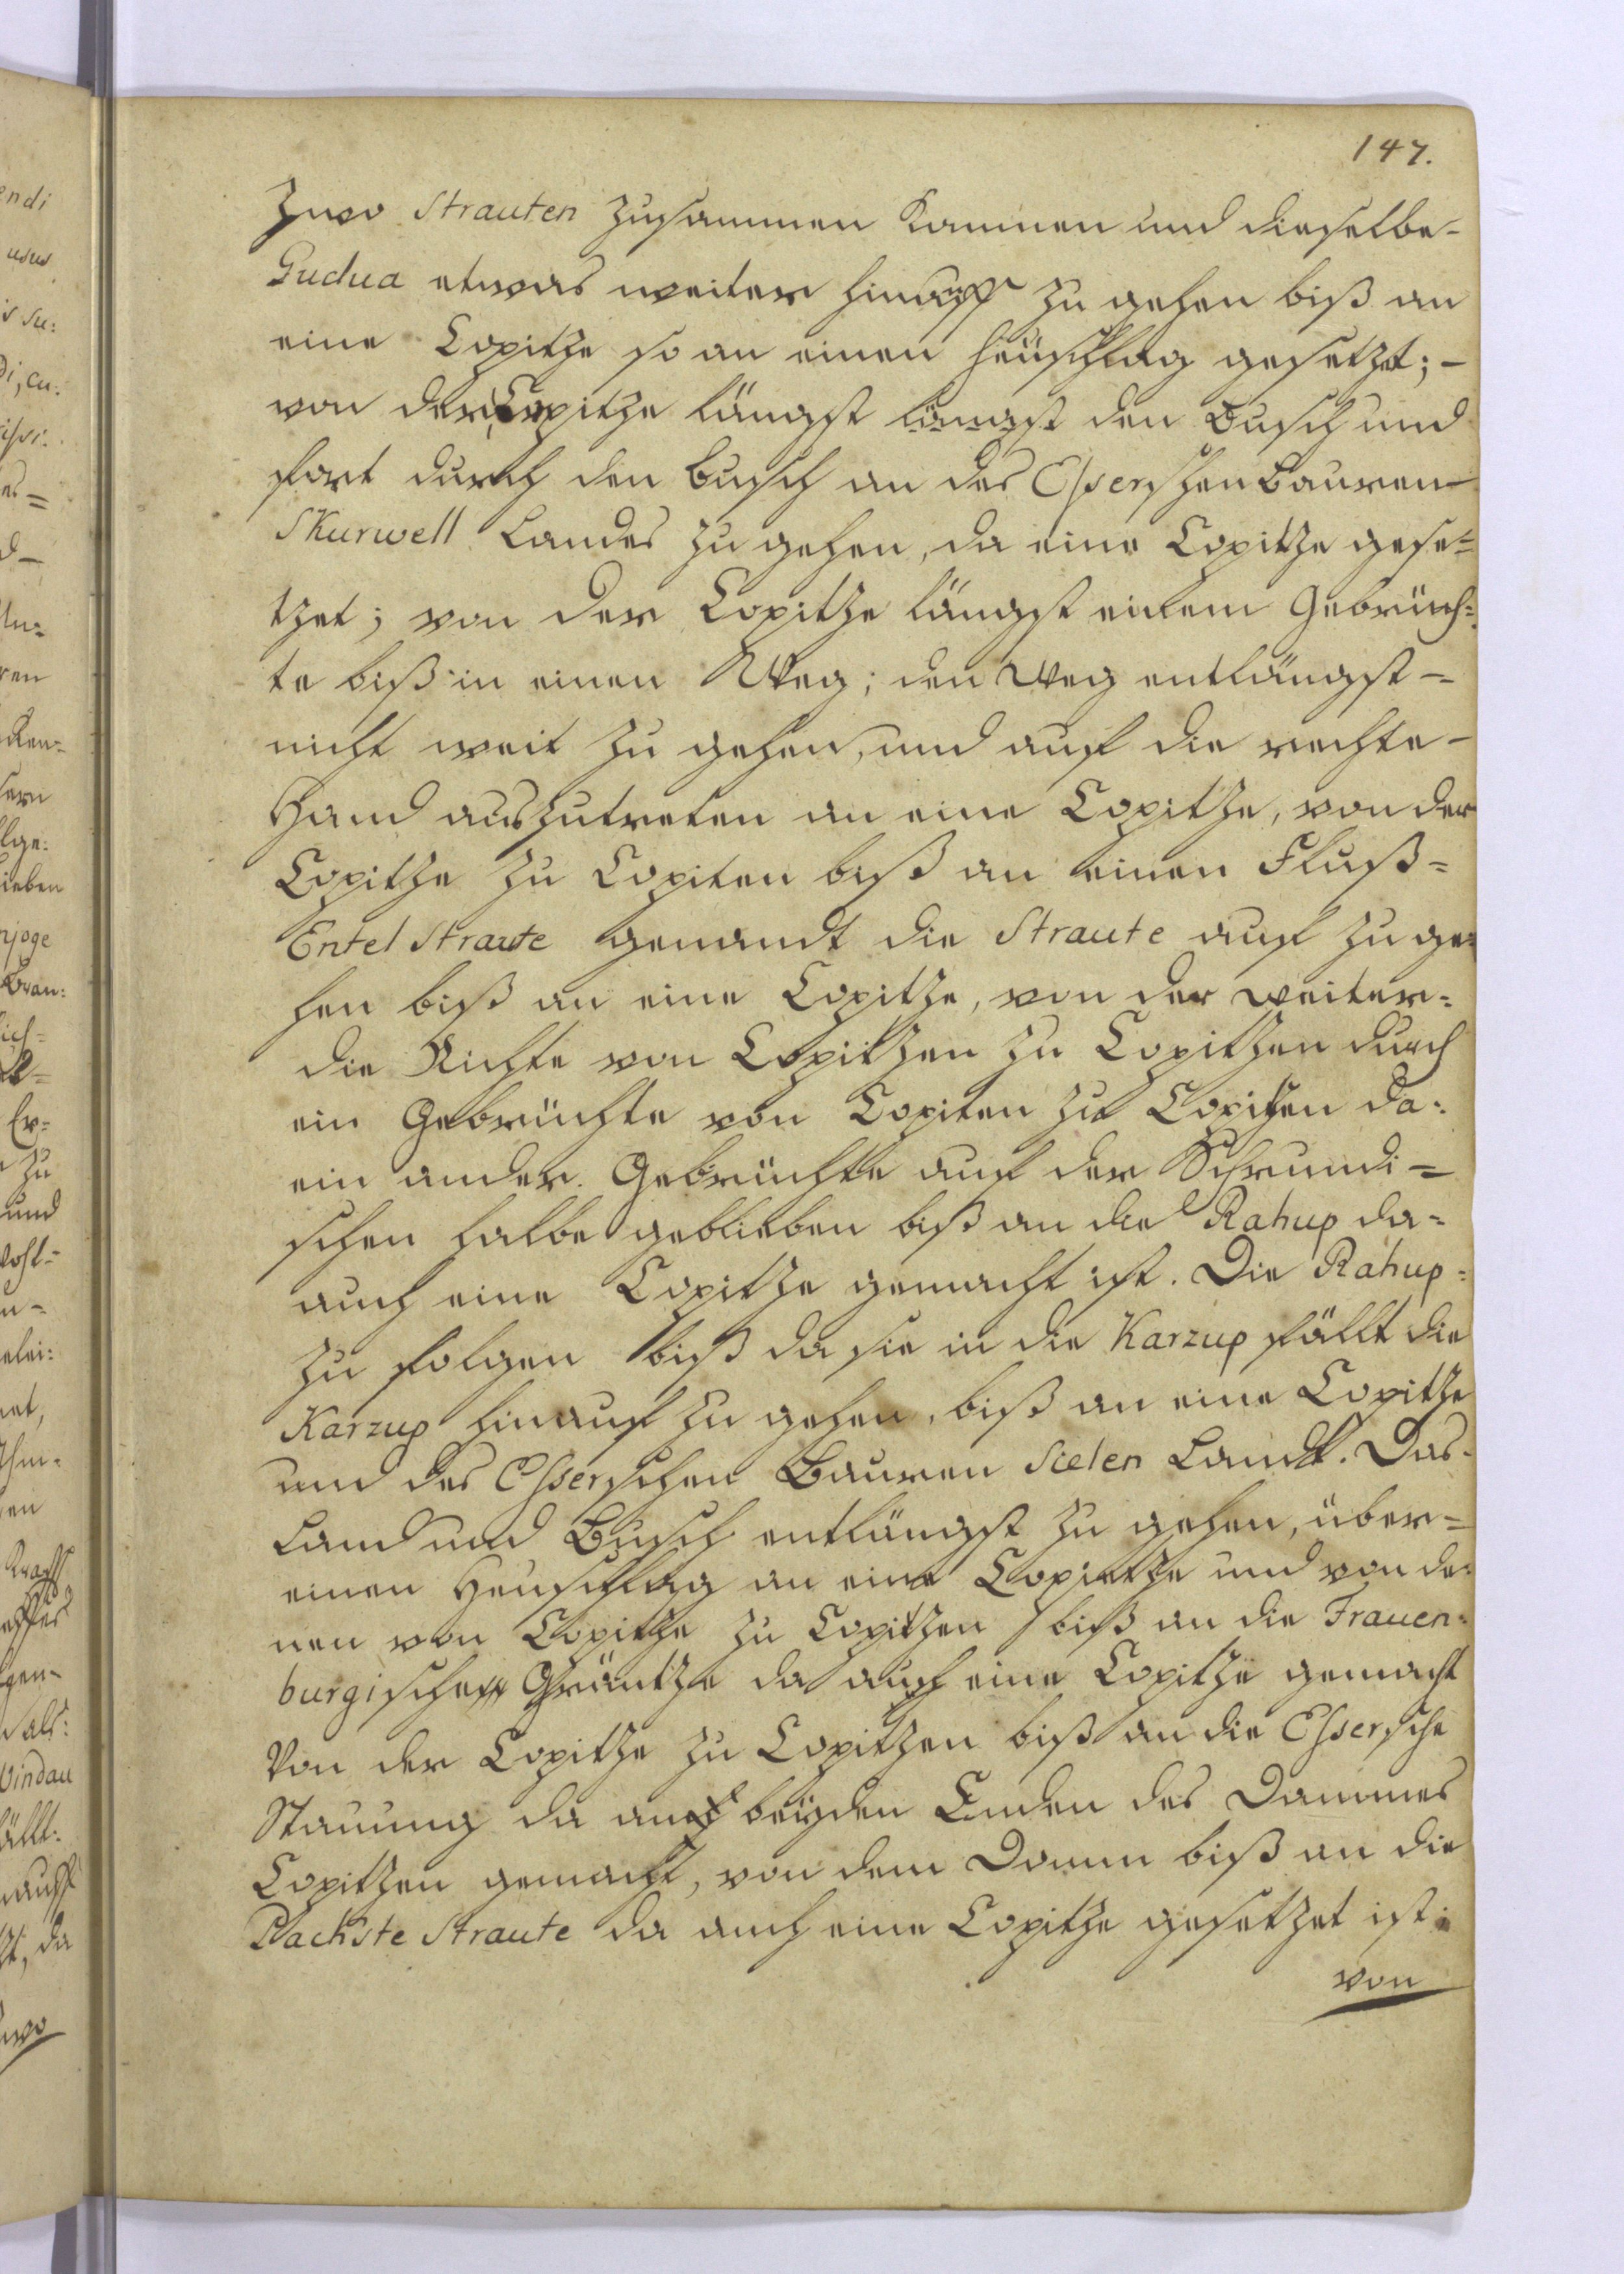 147.
Zwo Strauten zusammen kommen und dieselbe-
Gudua etwas weiter hinauff zu gehen biß an
eine Copitze so an einen Heuschlag gesetzt; -
von der Copitze längst längst den Busch und
fort durch den Busch an des Esserschen Bauren
Skurwell Landes zu gehen, da eine Copitze gese=
tzet; von der Copitze längst einem Gebrüch=
te biß in einen Weg; den Weg entlängst -
nicht weit zu gehen, und auf die rechte -
Hand auszutreten an eine Copitze, von der
Copitze zu Copiten biß an einen Fluß=
Entel Straute genandt die Straute auf zu ge=
hen biß an eine Copitze, von der weiter=
die Richte von Copitzen zu Copitzen durch
ein Gebrüchte von Copiten zu Copitzen da=
ein ander Gebrüchte auf der Schrundi=
schen halbe geblieben biß an die Rahup da=
auch eine Copitze gemacht ist. Die Rahup=
zu folgen biß da sie in die Karzup fällt die
Karzup hinauf zu gehen, biß an eine Copitze
und des Esserschen Bauren Sielen Landt. Das
Land und Busch entlängst zu gehen, über=
einen Heuschlag an eine Copietze und von de=
nen von Copitze zu Copitzen biß an die Frauen=
burgische Gräntze da auch eine Copitze gemacht
Von der Copitze zu Copitzen biß an die Essersche
Stauung da auf beyden Enden des Dammes
Copitzen gemacht, von dem Damm biß an die
Nachste Straute da auch eine Copitze gesetzet ist:
von